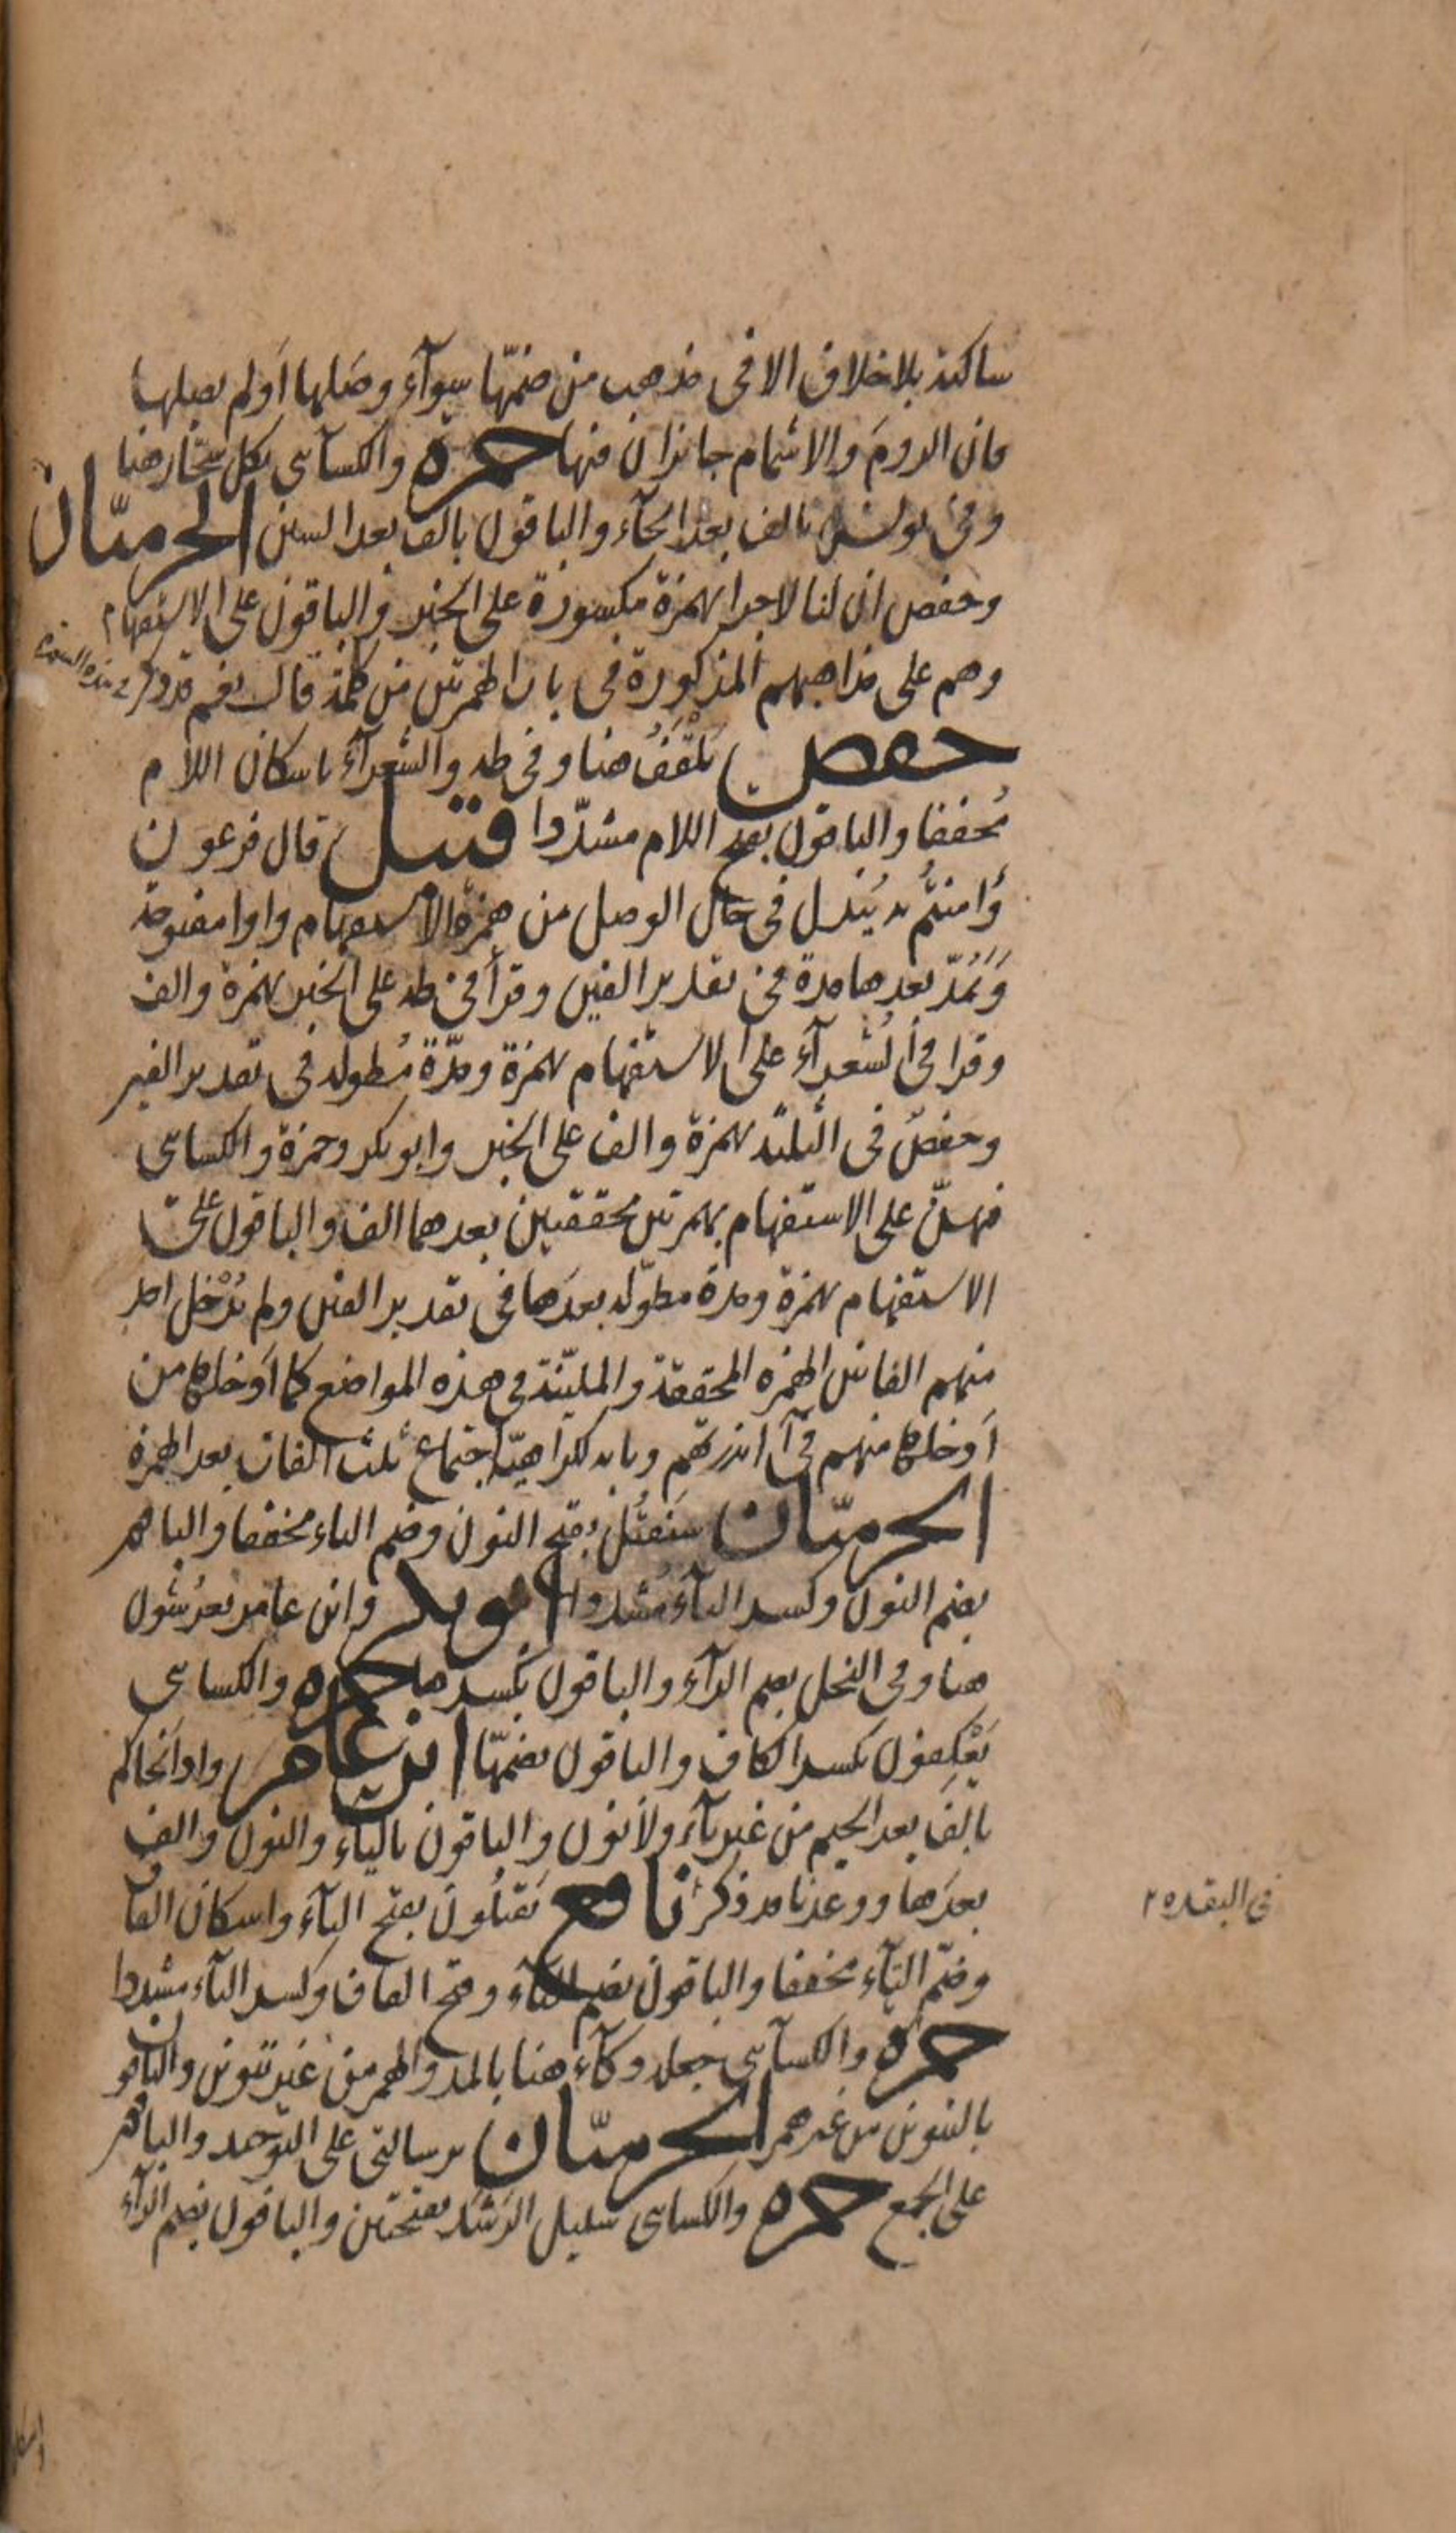 ساكنة بلا خلاف الا فى مذهب من ضمّها سوآء وصَلها اَولم يصلها
فان الرومَ والاشمام جائزان فيها حمزة والكسآئى بكل سحّار هنا
وفى يونس بالف بعد الحآء والباقون بالف بعد السين الحرميّان
وحفص ان لنا لاجرا بهمزة مكسورة على الخبر والباقون على الاستفهام
وهم على مذاهبهم المذكورة فى باب الهمزتين من كلمة قال نعم قد ذكر فى هذه السورة
حفص تَلْقَفُ هنا وفى طه والشعرآء باسكان اللام
مُخففا والباقون بفتح اللام مشدّدا قنبل قال فرعون
وَامنتُم به يُبدل فى حال الوصل من همزة الاستفهام واوا مفتوحة
وَيَمُدّ بعدها مدة فى تقدير الفين وقرأ فى طه على الخبر بهمزة والف
وقرا فى الشعرآء على الاستفهام بهمزة ومدّة مُطولة فى تقدير الفين
وحفصٌ فى الثلثة بهمزة والف على الخبر وابو بكر وحمزة والكسائى
فيهنّ على الاستفهام بهمزتين محققتين بعدهما الف والباقون على
الاستفهام بهمزة ومدة مطوّلة بعدَها فى تقدير الفين ولم يُدْخل احد
منهم الفا بين الهمزة المحققة والمليّنة فى هذه المواضع كما اَدخلها من
اَدخلها منهم فى ءَانذرتهم وبابه لكراهية اجتماع ثلث الفات بعد الهمزة
الحرميّان سَنَقتُل بفتح النون وضم التاء مخففا والباقون
بضم النون وكسر التآء مُشددا ابو بكر وابن عامر يعرُشون
هنا وفى النحل بضم الرآء والباقون بكسرها حمزة والكسائى
يَعْكِفون بكسر الكاف والباقون بضمّها ابن عامر واذ اَنجاكم
بالِف بعد الجيم من غير يآء ولا نون والباقون بالياء والنون والف
بعدَها ووعدنا قد ذكر نافع يَقتلُونَ بفتح اليآء واسكان القاف
وضمّ التآء مخففا والباقون بضم اليآء وفتح القاف وكسر التآء مشددا
حمزة والكسآئى جعله دكآء هنا بالمد والهمز من غير تنوين والباقون
بالتنوين من غير همز الحرميّان برسالتى على التوحيد والباقون
على الجمع حمزة والكسائى سبيل الرَشَد بفتحتين والباقون بضم الرآء
فى البقرة ٢